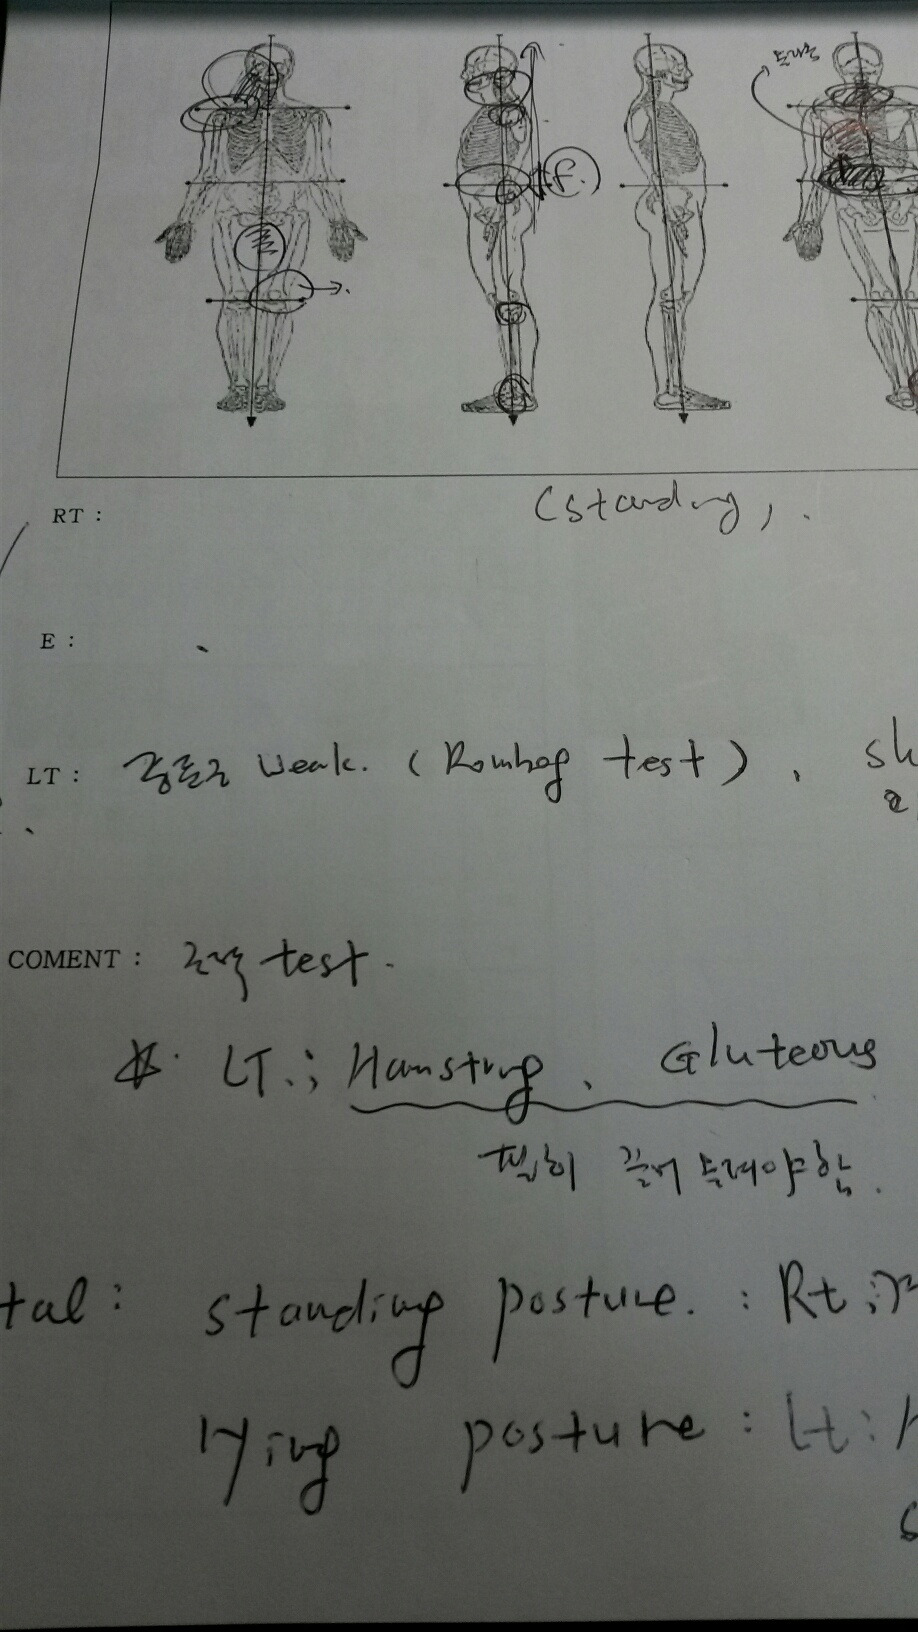 (standing,
RT :
E :
LT : 중둔근 weak. (Romberg test) ,
COMENT : 근력 test.
LT.; Hamstring, Gluteous
필히 끌어 올려야함.
tal : standing posture. : Rt ;
lying posture : Lt :